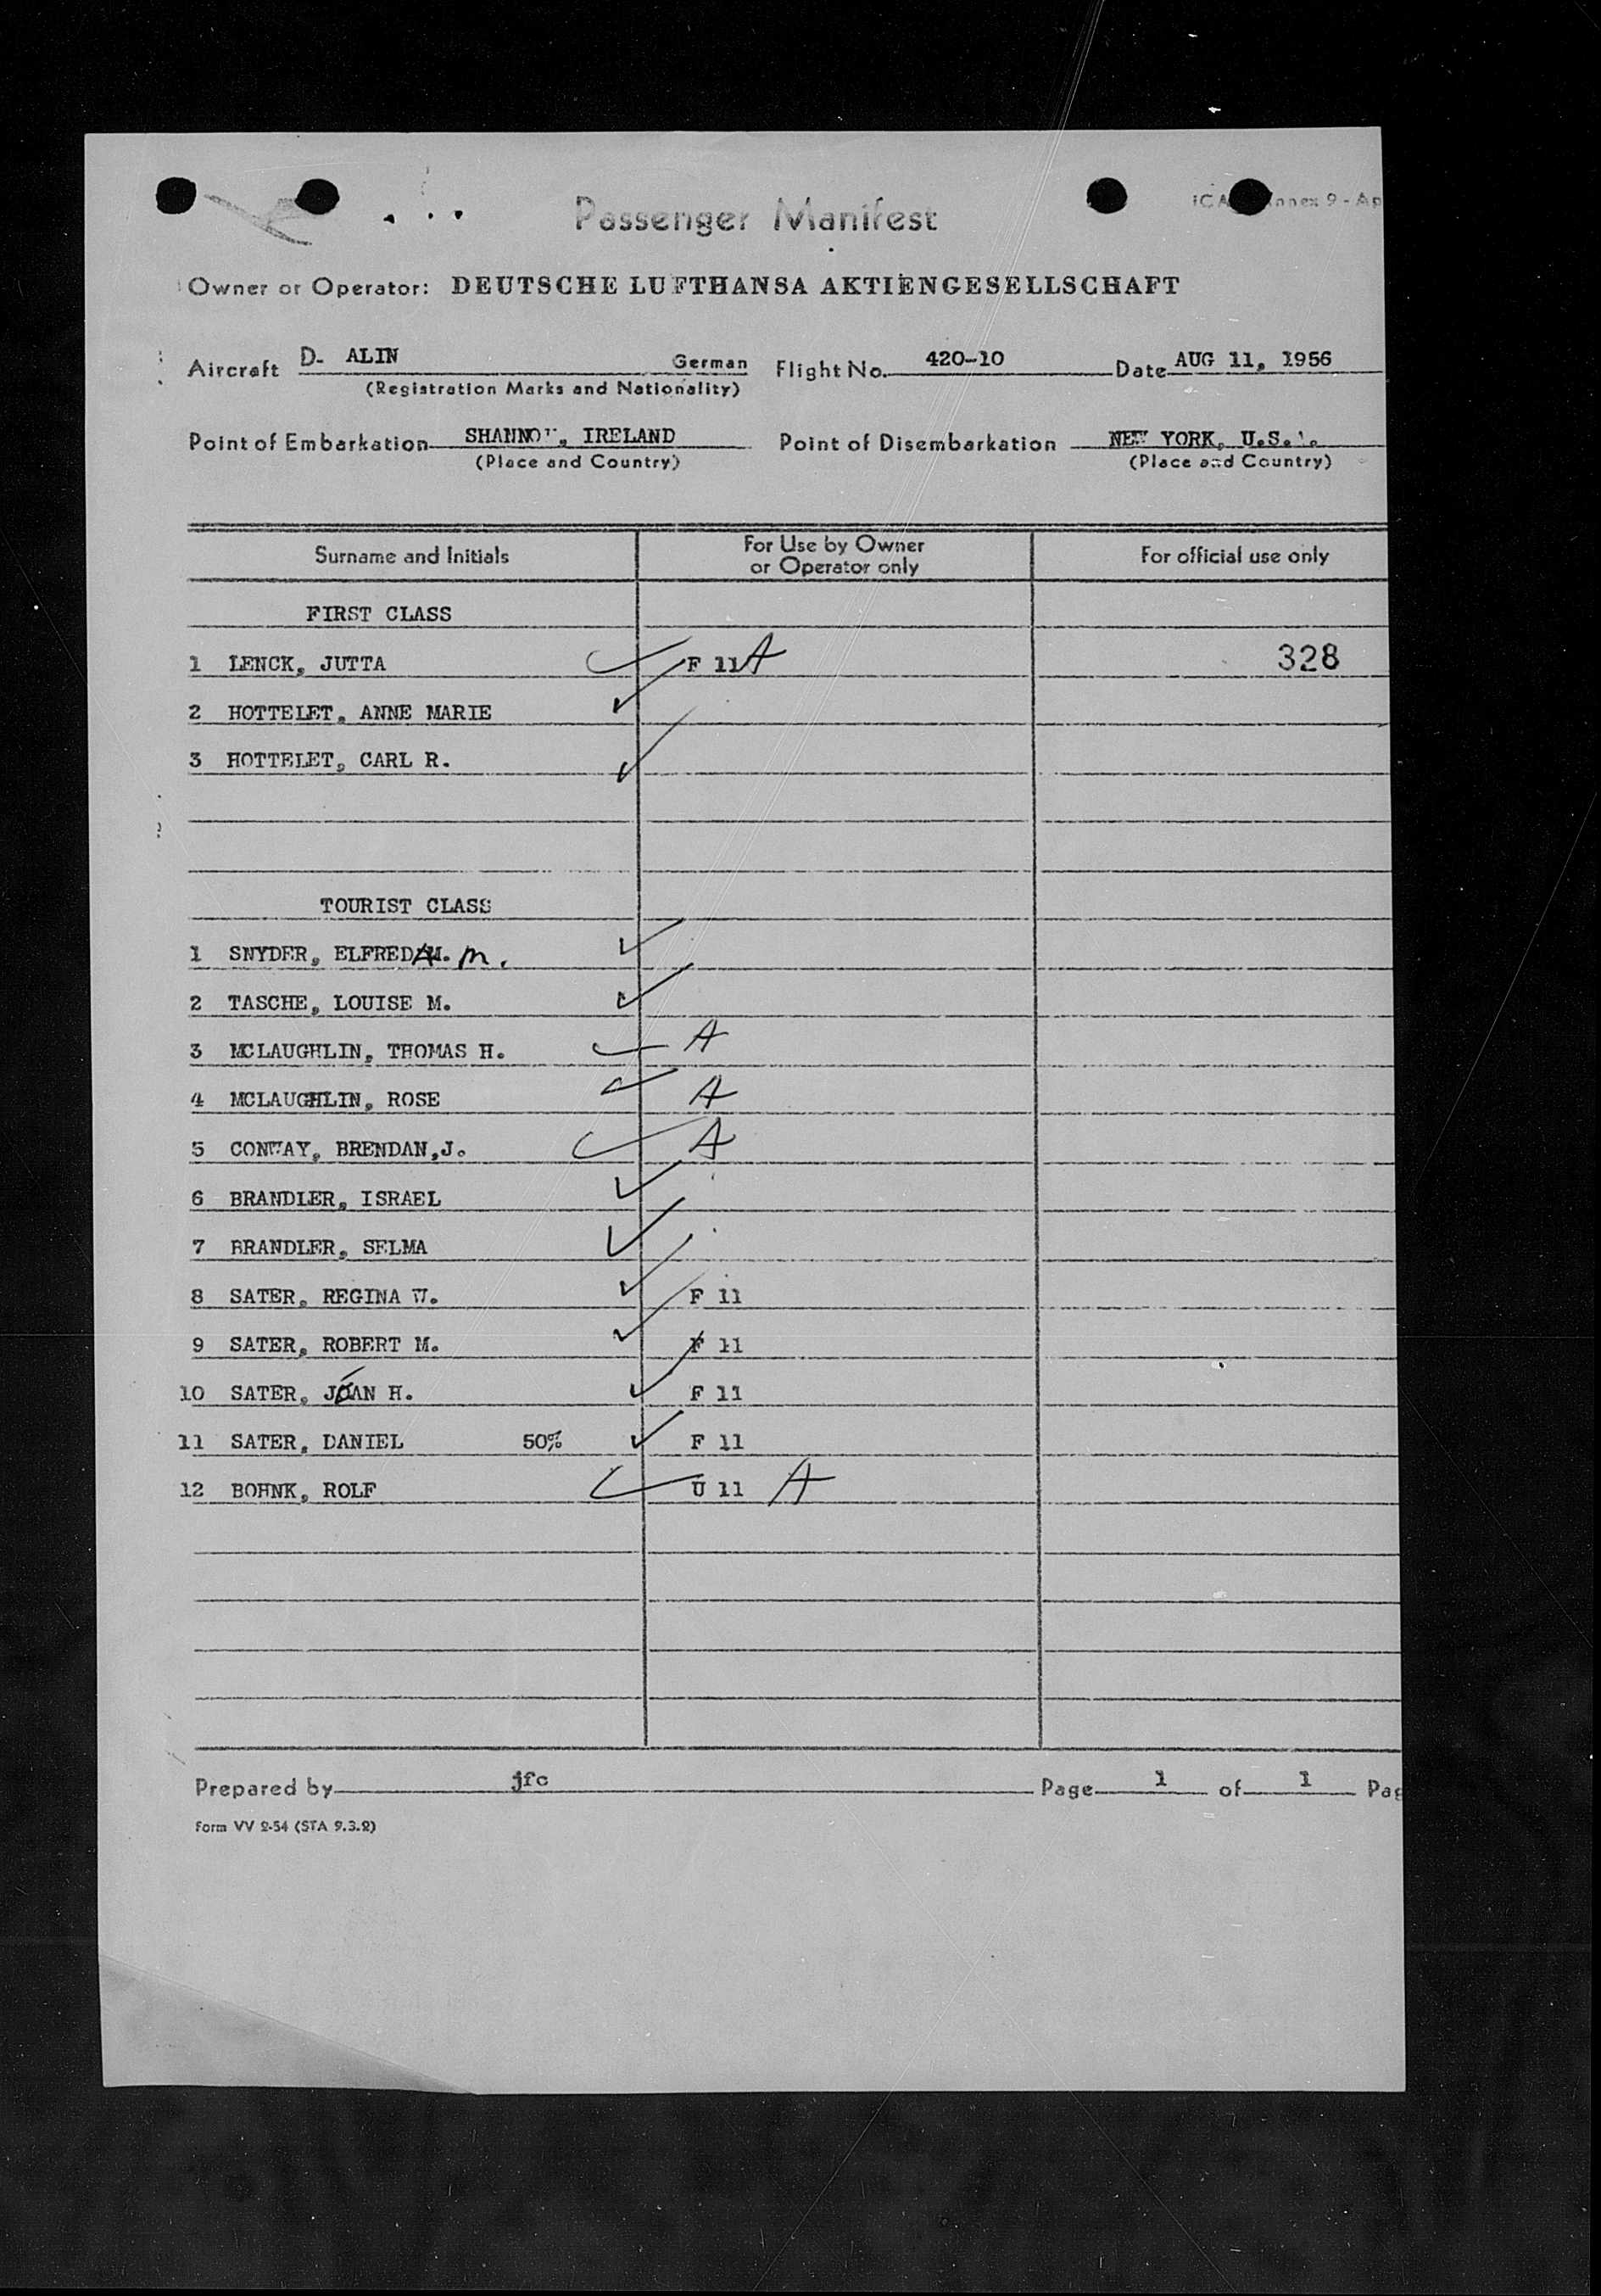 Passenger Manifest
Owner or Operator: DEUTSCHE LUFTHANSA AKTIENGESELLSCHAFT
Aircraft D- ALIN German Flight No. 420-10 Date AUG 11, 1956
(Registration Marks and Nationality)
Point of Embarkation SHANNON, IRELAND Point of Disembarkation NEW YORK, U.S.A.
(Place and Country) (Place and Country)
Surname and Initials For Use by Owner or Operator only For official use only
FIRST CLASS
1 LENCK, JUTTA F 11 A 328
2 HOTTELET, ANNE MARIE
3 HOTTELET, CARL R.
TOURIST CLASS
1 SNYDER, ELFREDA M.
2 TASCHE, LOUISE M.
3 MCLAUGHLIN, THOMAS H. A
4 MCLAUGHLIN, ROSE A
5 CONWAY, BRENDAN,J. A
6 BRANDLER, ISRAEL
7 BRANDLER, SELMA
8 SATER, REGINA W. F 11
9 SATER, ROBERT M. F 11
10 SATER, JOAN H. F 11
11 SATER, DANIEL 50% F 11
12 BOHNK, ROLF U 11 A
Prepared by jfc Page 1 of 1
Form VV 2-54 (STA 9.3.2)